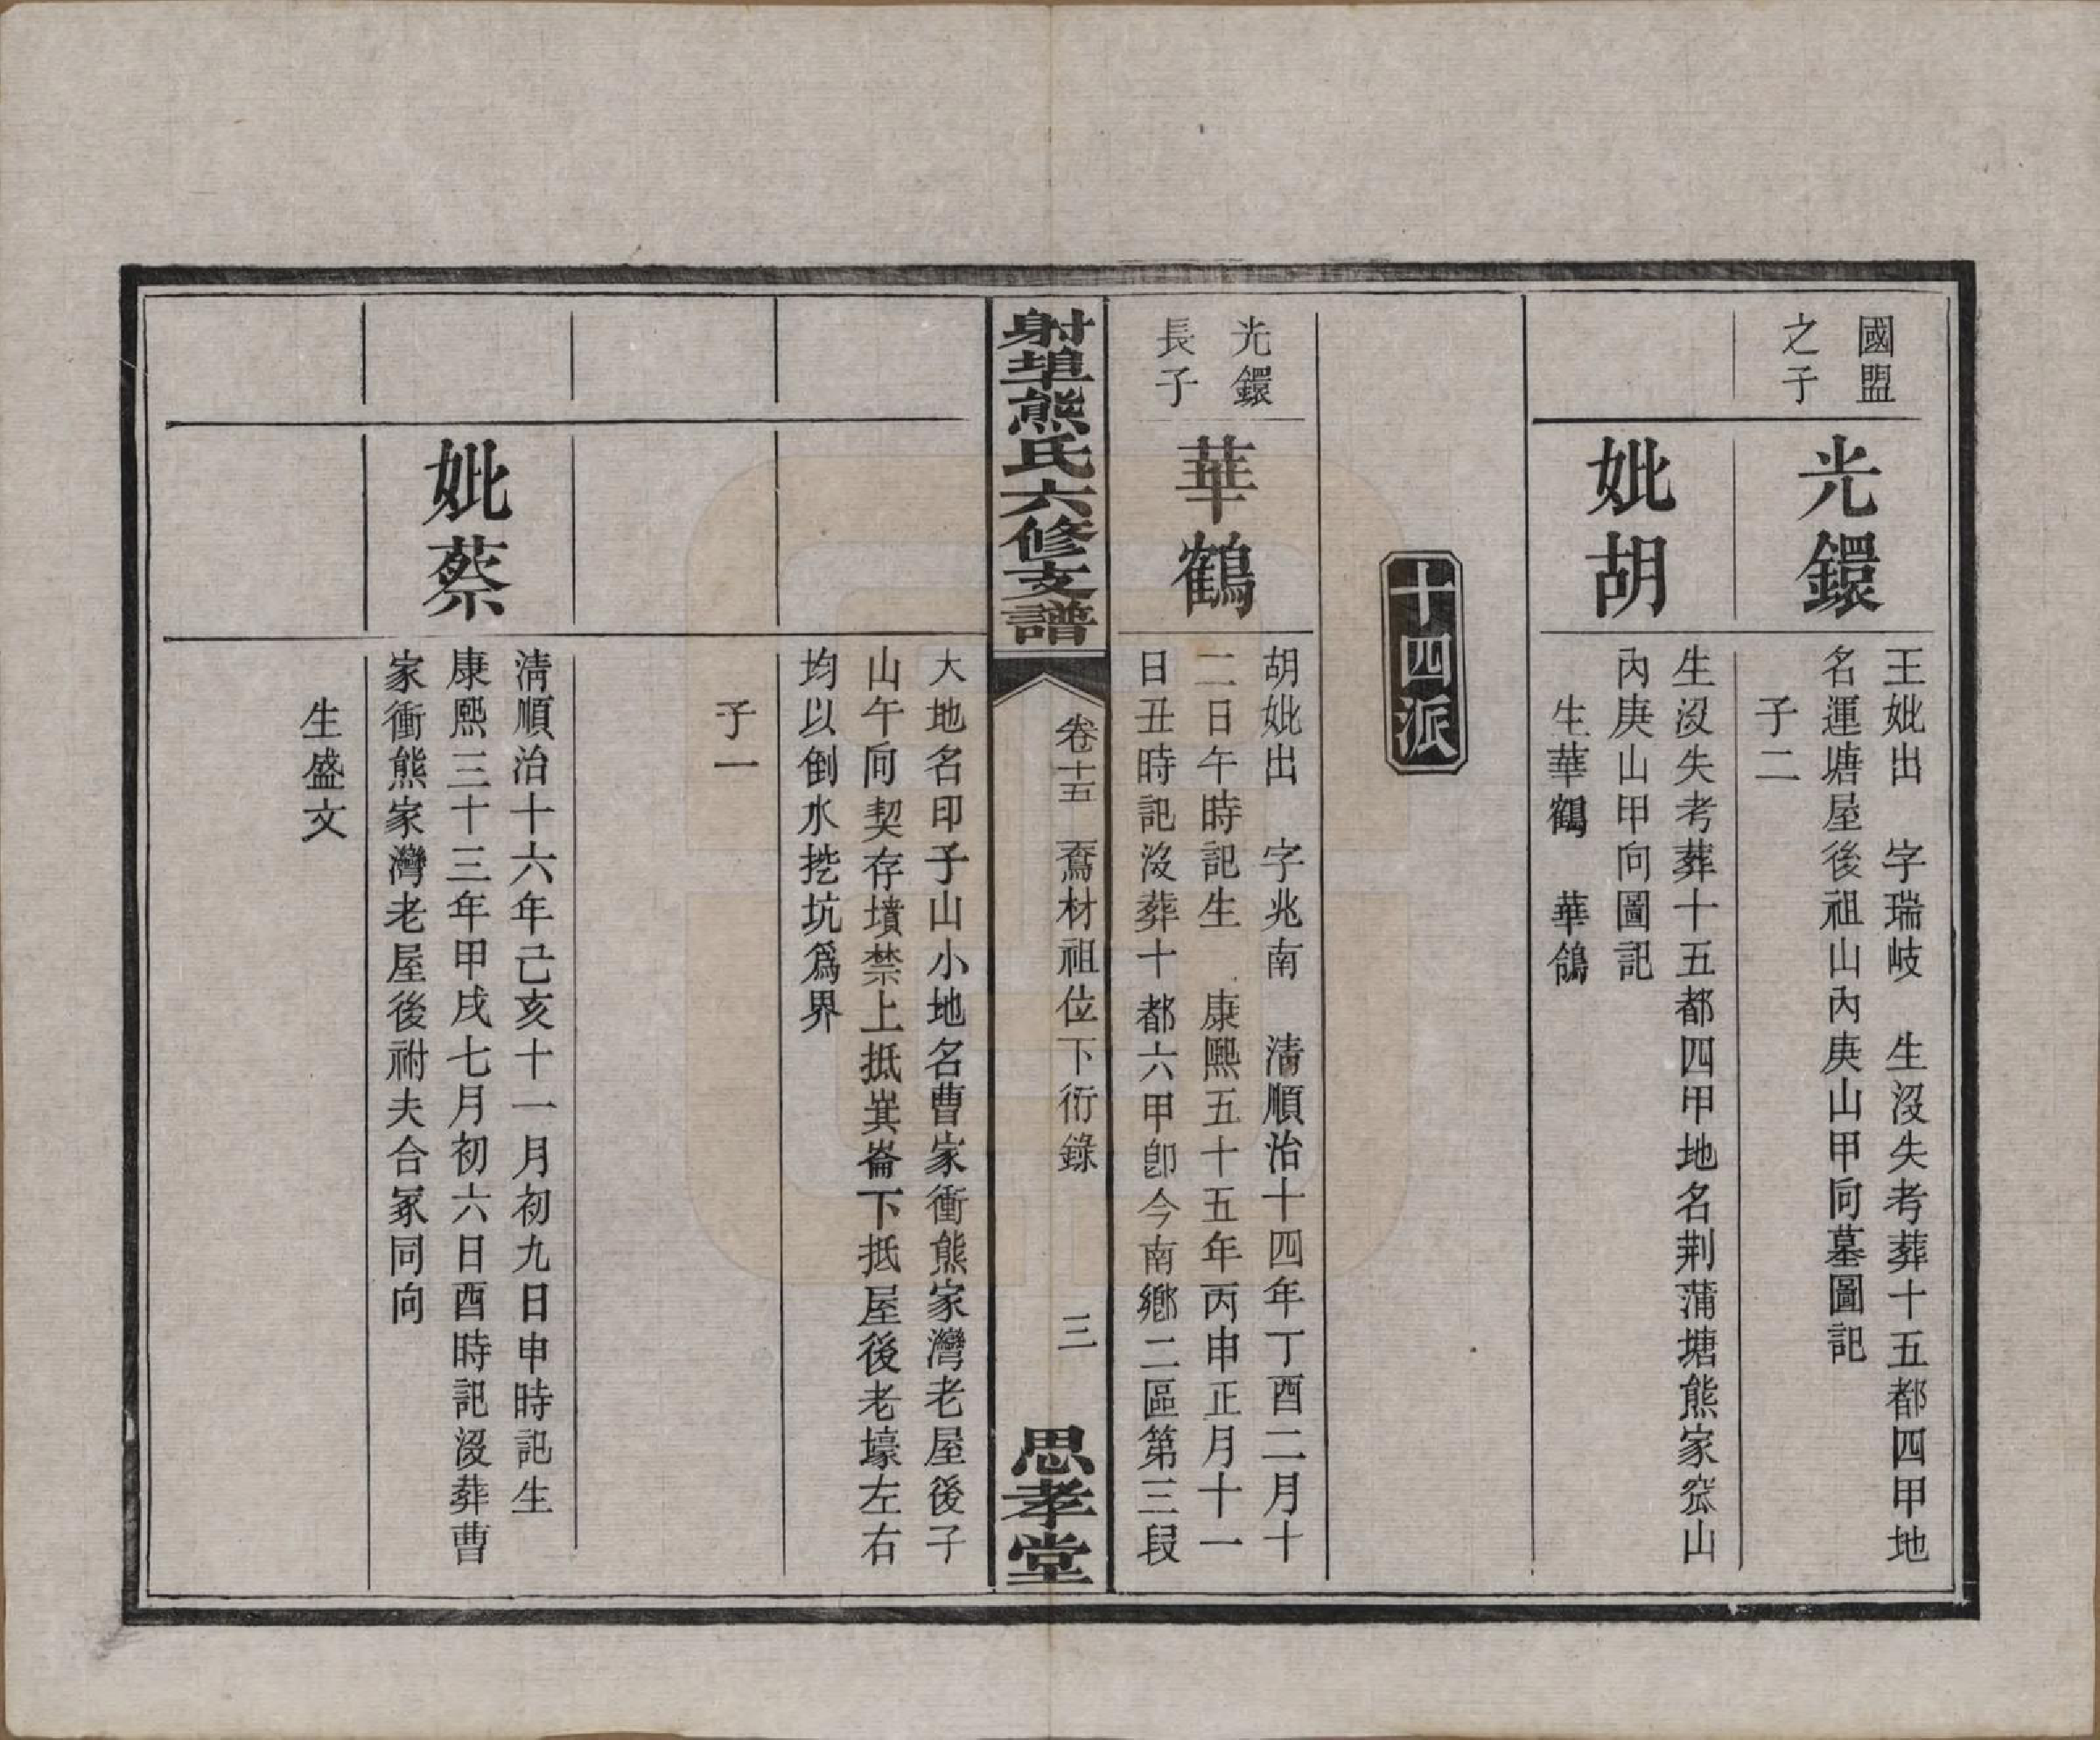 國盟
之子
光鐶
王妣出　字瑞岐　生沒失考葬十五都四甲地
名運塘屋後祖山內庚山甲向墓圖記
子二
妣胡
生沒失考葬十五都四甲地名荆蒲塘熊家窊山
內庚山甲向圖記
生華鶴　華鴿
十四派
光鐶
長子
華鶴
胡妣出　字兆南　清順治十四年丁酉二月十
二日午時記生　康熙五十五年丙申正月十一
日丑時記沒葬十都六甲卽今南鄉二區第三段
射埠熊氏六修支譜
卷十五　鶱材祖位下衍錄　三
思孝堂
大地名印子山小地名曹家衝熊家灣老屋後子
山午向契存墳禁上抵崑崙下抵屋後老壕左右
均以倒水挖坑爲界
子一
妣蔡
清順治十六年己亥十一月初九日申時記生
康熙三十三年甲戌七月初六日酉時記沒葬曹
家衝熊家灣老屋後祔夫合冢同向
生盛文